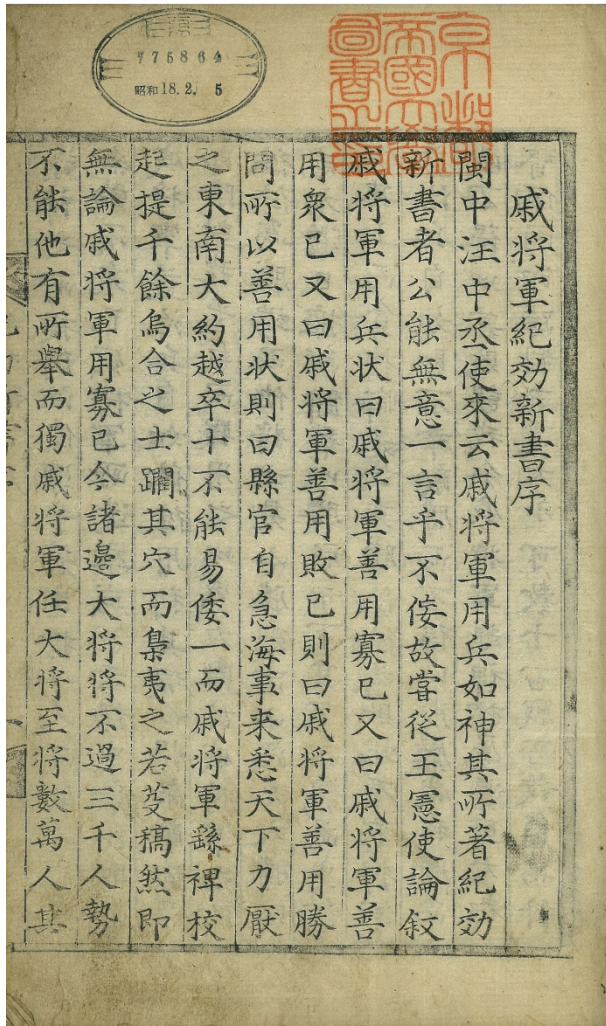 775864
昭和18.2.5
京都
帝國大學
圖書之印
戚將軍紀効新書序
閩中汪中丞使來云戚將軍用兵如神其所著紀効
新書者公能無意一言乎不侫故嘗從王憲使論叙
戚將軍用兵状曰戚將軍善用寡已又曰戚將軍善
用衆已又曰戚將軍善用敗已則曰戚將軍善用勝
問所以善用状則曰縣官自急海事来悉天下力厭
之東南大約越卒十不能易倭一而戚將軍繇裨校
起提千餘烏合之士躙其穴而梟夷之若芟稿然即
無論戚將軍用寡已今諸邊大將將不過三千人勢
不能他有所舉而獨戚將軍任大將至將數萬人其